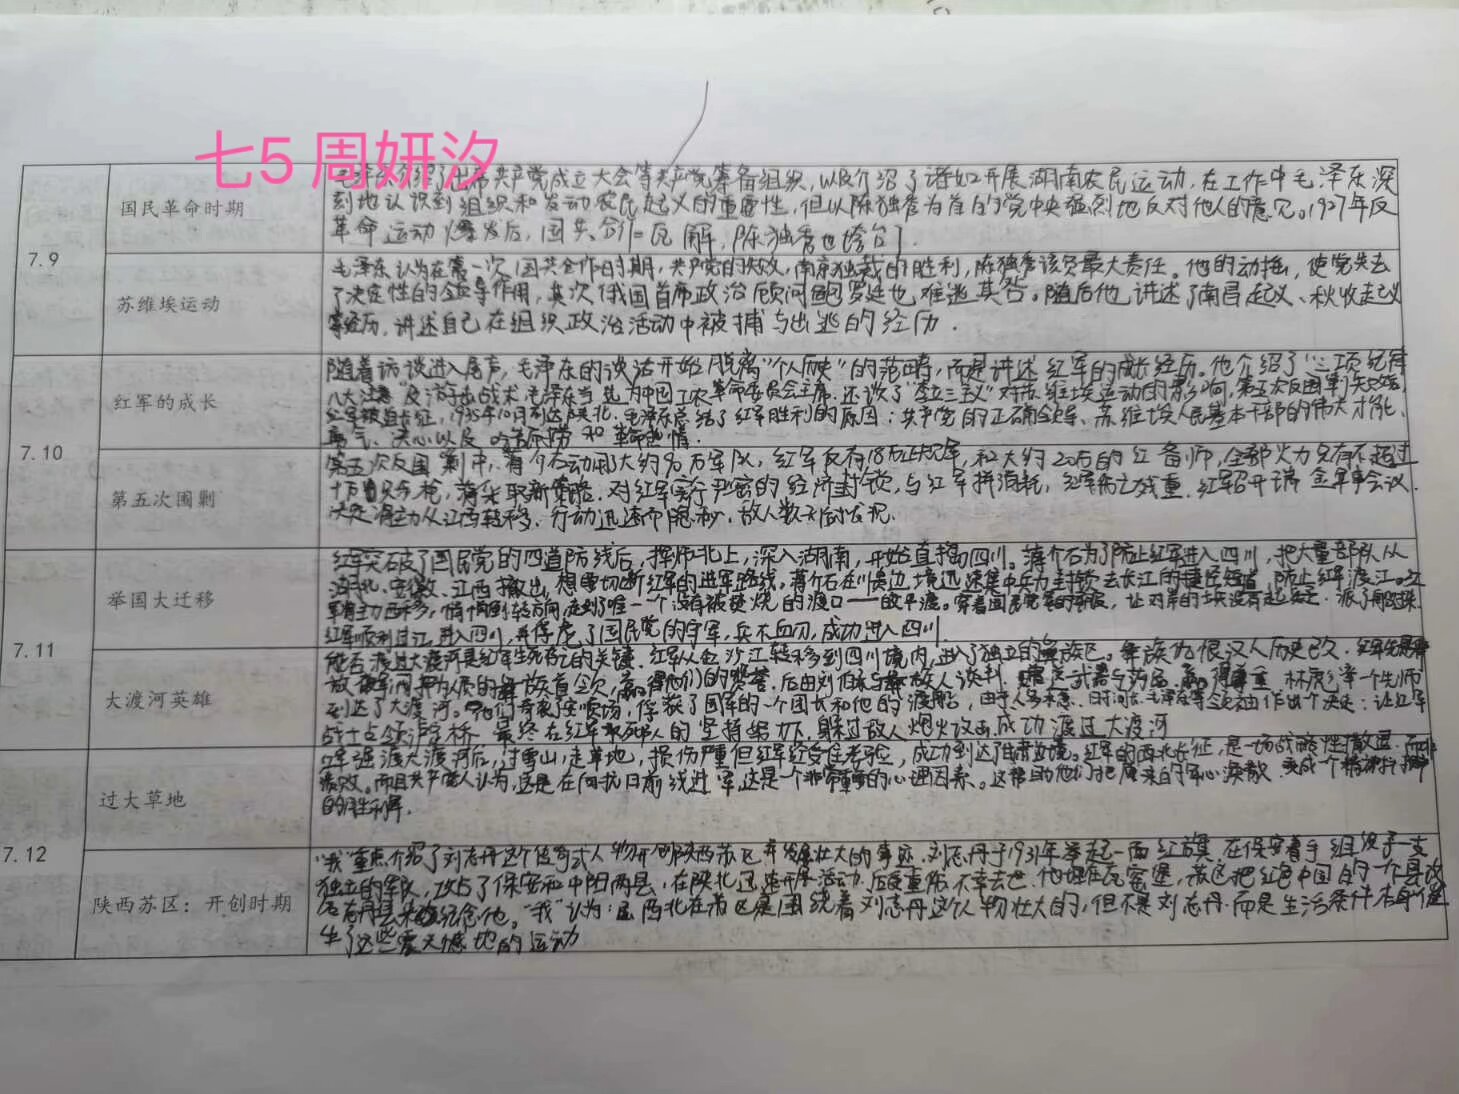 七5 周妍汐
7.9
国民革命时期
介绍了出席共产党成立大会等共产党筹备组织,以及介绍了诸如开展湖南农民运动,在工作中毛泽东深
刻地认识到组织和发动农民起义的重要性,但以陈独秀为首的党中央强烈地反对他人的意见。1927年反
革命运动爆发后,国共合作瓦解,陈独秀也垮台了.
苏维埃运动
毛泽东认为在第一次国共合作的时期,共产党的失败,南京独裁的胜利,陈独秀该负最大责任。他的动摇,使党失去
了决定性的领导作用,其次俄国首席政治顾问鲍罗廷也难逃其咎。随后他讲述了南昌起义、秋收起义
等经历,讲述自己在组织政治活动中被捕与出逃的经历.
7.10
红军的成长
随着访谈进入尾声,毛泽东的谈话开始脱离“个人历史”的范畴,而是讲述红军的成长经历。他介绍了“三项纪律
八大注意”及游击战术.毛泽东当选为中国工农革命委员会主席.还谈了“李立三主义”对苏维埃运动的影响,第五次反围剿失败后,
红军被迫长征,1935年10月到达陕北.毛泽东总结了红军胜利的原因:共产党的正确领导、苏维埃人民基本干部的伟大才能、
勇气、决心以及 和革命热情.
第五次围剿
第五次反围剿中,蒋介石动用大约90万军队,红军仅有18万正规军,和大约20万的红备师,全部火力只有不超过
十万只步枪,蒋采取新策略.对红军实行严密的经济封锁,与红军拼消耗,红军伤亡残重.红军召开瑞金军事会议.
决定 主力从江西转移.行动迅速而隐秘,敌人数天后才发现.
7.11
举国大迁移
红军突破了国民党的四道防线后,挥师北上,深入湖南,开始直捣四川。蒋介石为了防止红军进入四川,把大量部队从
湖北、安徽、江西撤出,想要切断红军的进军路线。蒋介石在川贵边境迅速集中兵力封锁去长江的捷径短道,防止红军渡江。红
军 主力西移,悄悄 转方向,走到了唯一一个没有被焚烧的渡口——皎平渡。穿着国民党军的 服,让对岸的士兵没有起疑.派了
红军顺利过江,进入四川,再俘虏了国民党的守军,兵不血刃,成功进入四川.
大渡河英雄
能否渡过大渡河是红军生死存亡的关键.红军从金沙江转移到四川境内,进入了独立的彝族区。彝族仇恨汉人历史已久.红军先是释
放 为人质的彝族首领,赢得他们的赞誉.后由刘伯承与敌人谈判. 林彪率一个先师
到达了大渡河。他们奇袭了安顺场,俘获了国军的一个团长和他的渡船,由于人多 、时间 .毛泽东等领袖作出个决定:让红军
战士占领泸定桥.最终在红军敢死队人的坚持努力下,躲过敌人炮火攻击,成功渡过大渡河
7.12
过大草地
红军强渡大渡河后,过雪山,走草地,损伤严重但红军经受住考验,成功到达了甘肃边境。红军的西北长征,是一场战略性撤退.而非
溃败。而且共产党人认为,这是在向抗日前线进军,这是一个非常重要的心理因素。这帮助他们把原来的军心涣散,变成一个精神
的胜利.
陕西苏区:开创时期
“我”重点介绍了刘志丹这个传奇式人物开创陕西苏区并发展壮大的事迹.刘志丹于1931年举起一面红旗.在保安着手组设了一支
独立的军队,攻占了保安和中阳两县,在陕北迅速开展活动.后受重伤不幸去世.他埋在瓦窑堡,苏区把红色中国的一个县改
名志丹县来纪念他。“我”认为:虽西北苏区是围绕着刘志丹这个人物壮大的,但不是刘志丹.而是生活条件本身催
生了这些震天撼地的运动